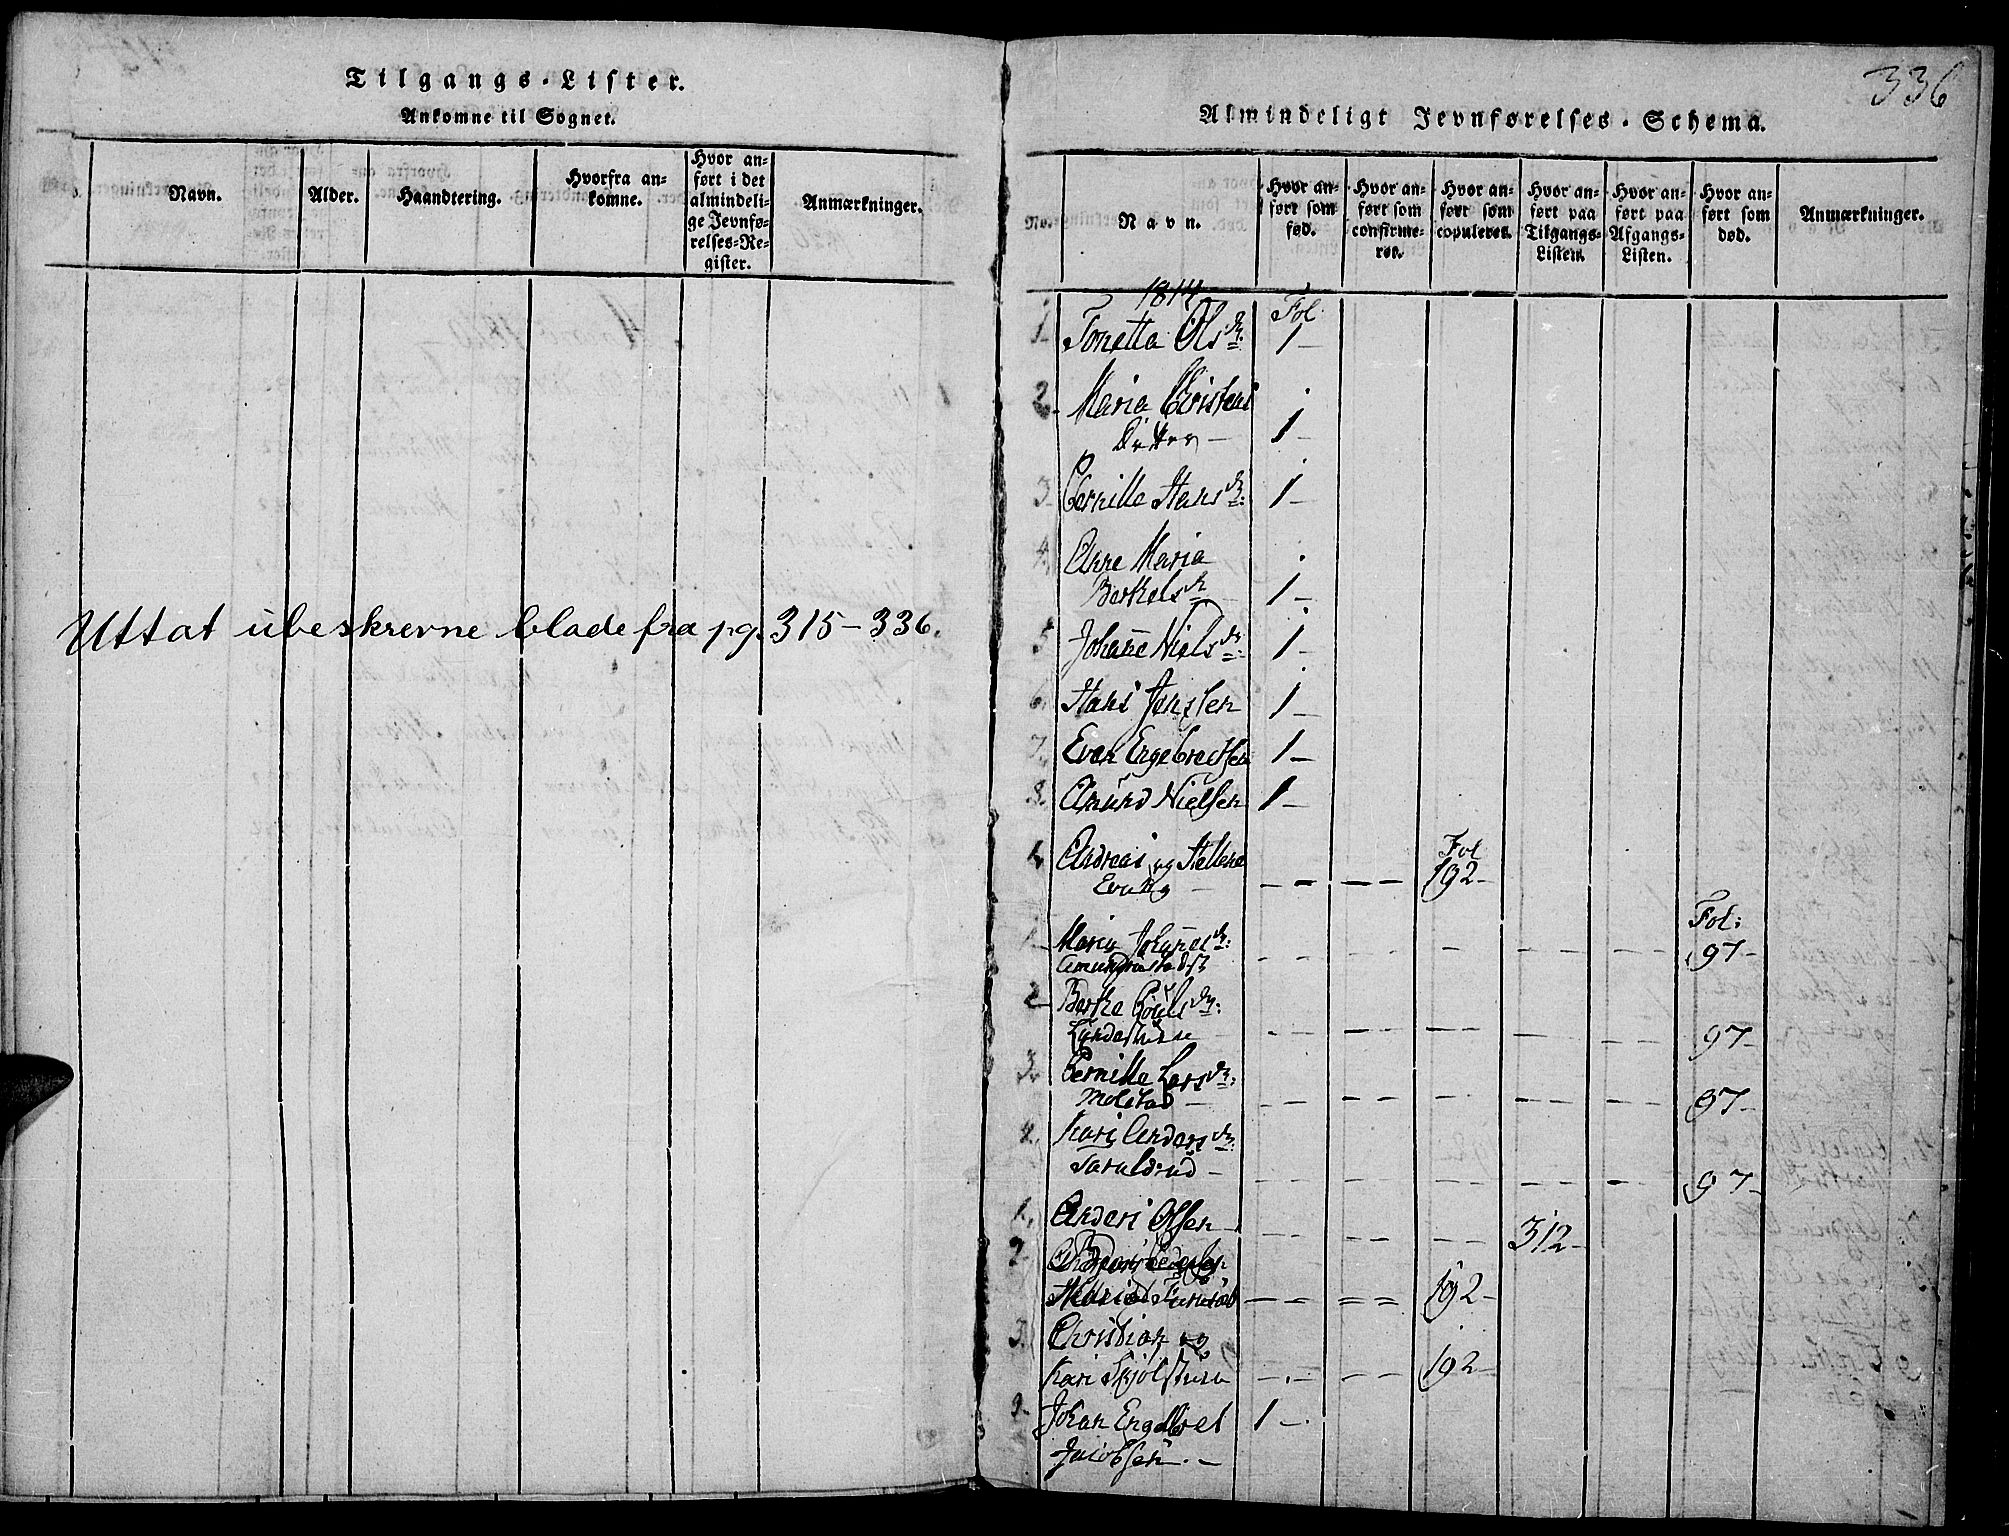 Tilgangs-Lister.
Ankomne til Sognet.
Navn.
Alder.
Haandtering.
Hvorfra an-
komne.
Hvor an-
ført i det
almindeli-
ge Jevnfø-
relses-Re-
gister.
Anmærkninger.
Uttat ubeskrevne blade fra pg. 315-336.
336
Almindeligt Jevnførelses-Schema.
No.
Navn.
Hvor an-
ført som
fød.
Hvor an-
ført som
confirme-
ret.
Hvor an-
ført som
copuleret.
Hvor an-
ført paa
Tilgangs-
Listen.
Hvor an-
ført paa
Afgangs-
Listen.
Hvor an-
ført som
død.
Anmærkninger.
1814 Fol.
1. Tonetta Olsdr. 1-
2. Maria Christens
Datter - 1-
3. Pernille Hansdr. 1-
4. Anne Maria
Berthelsdr. 1-
5. Johanne Nielsdr. 1-
6. Hans Jenssen 1-
7. Even Engebretsen 1-
8. Amund Nielsen 1-
Fol
1. Andreas og Hellene
192-
Fol:
1. Maria Johanesdr. 97-
2. Berthe 97-
3. Pernille Larsdr.
Molstad - 97-
4. Kari Andersdr. 97-
1. Anders Olsen - 312-
2.
192-
3. Christian og
Kari 192-
9. Johan Engelbret 1-
Jacobsen. -